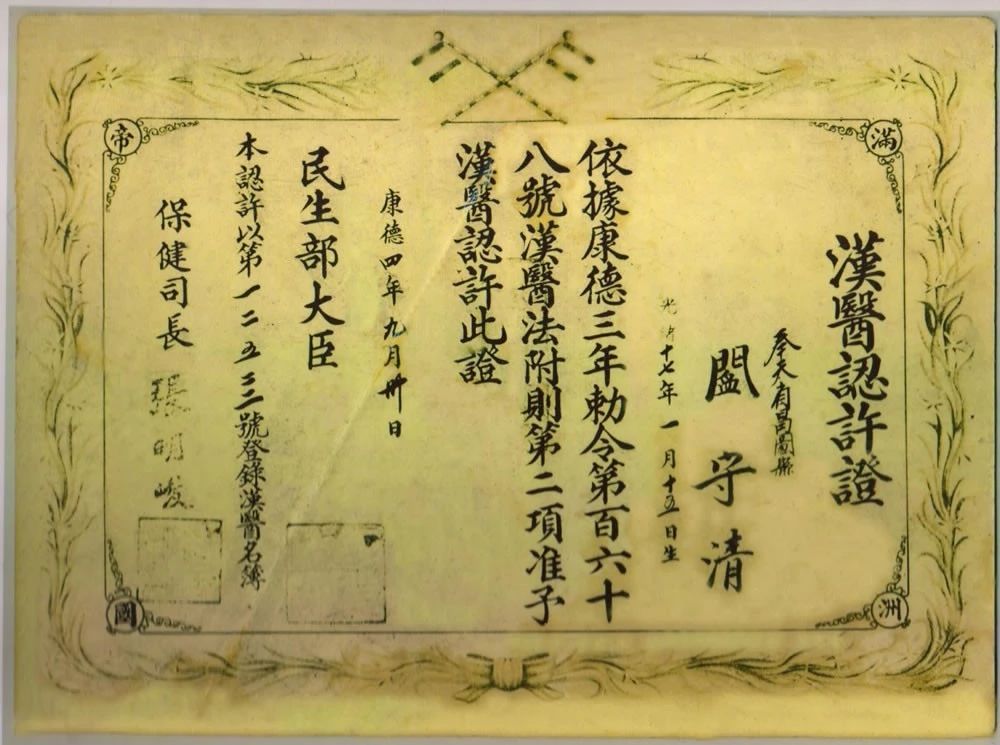 滿洲帝國
漢醫認許證
奉天省昌圖縣
守清
光緒十七年一月十五日生
依據康德三年勅令第百六十
八號漢醫法附則第二項准予
漢醫認許此證
康德四年九月卅日
民生部大臣
本認許以第一二五三三號登錄漢醫名簿
保健司長 張明峻